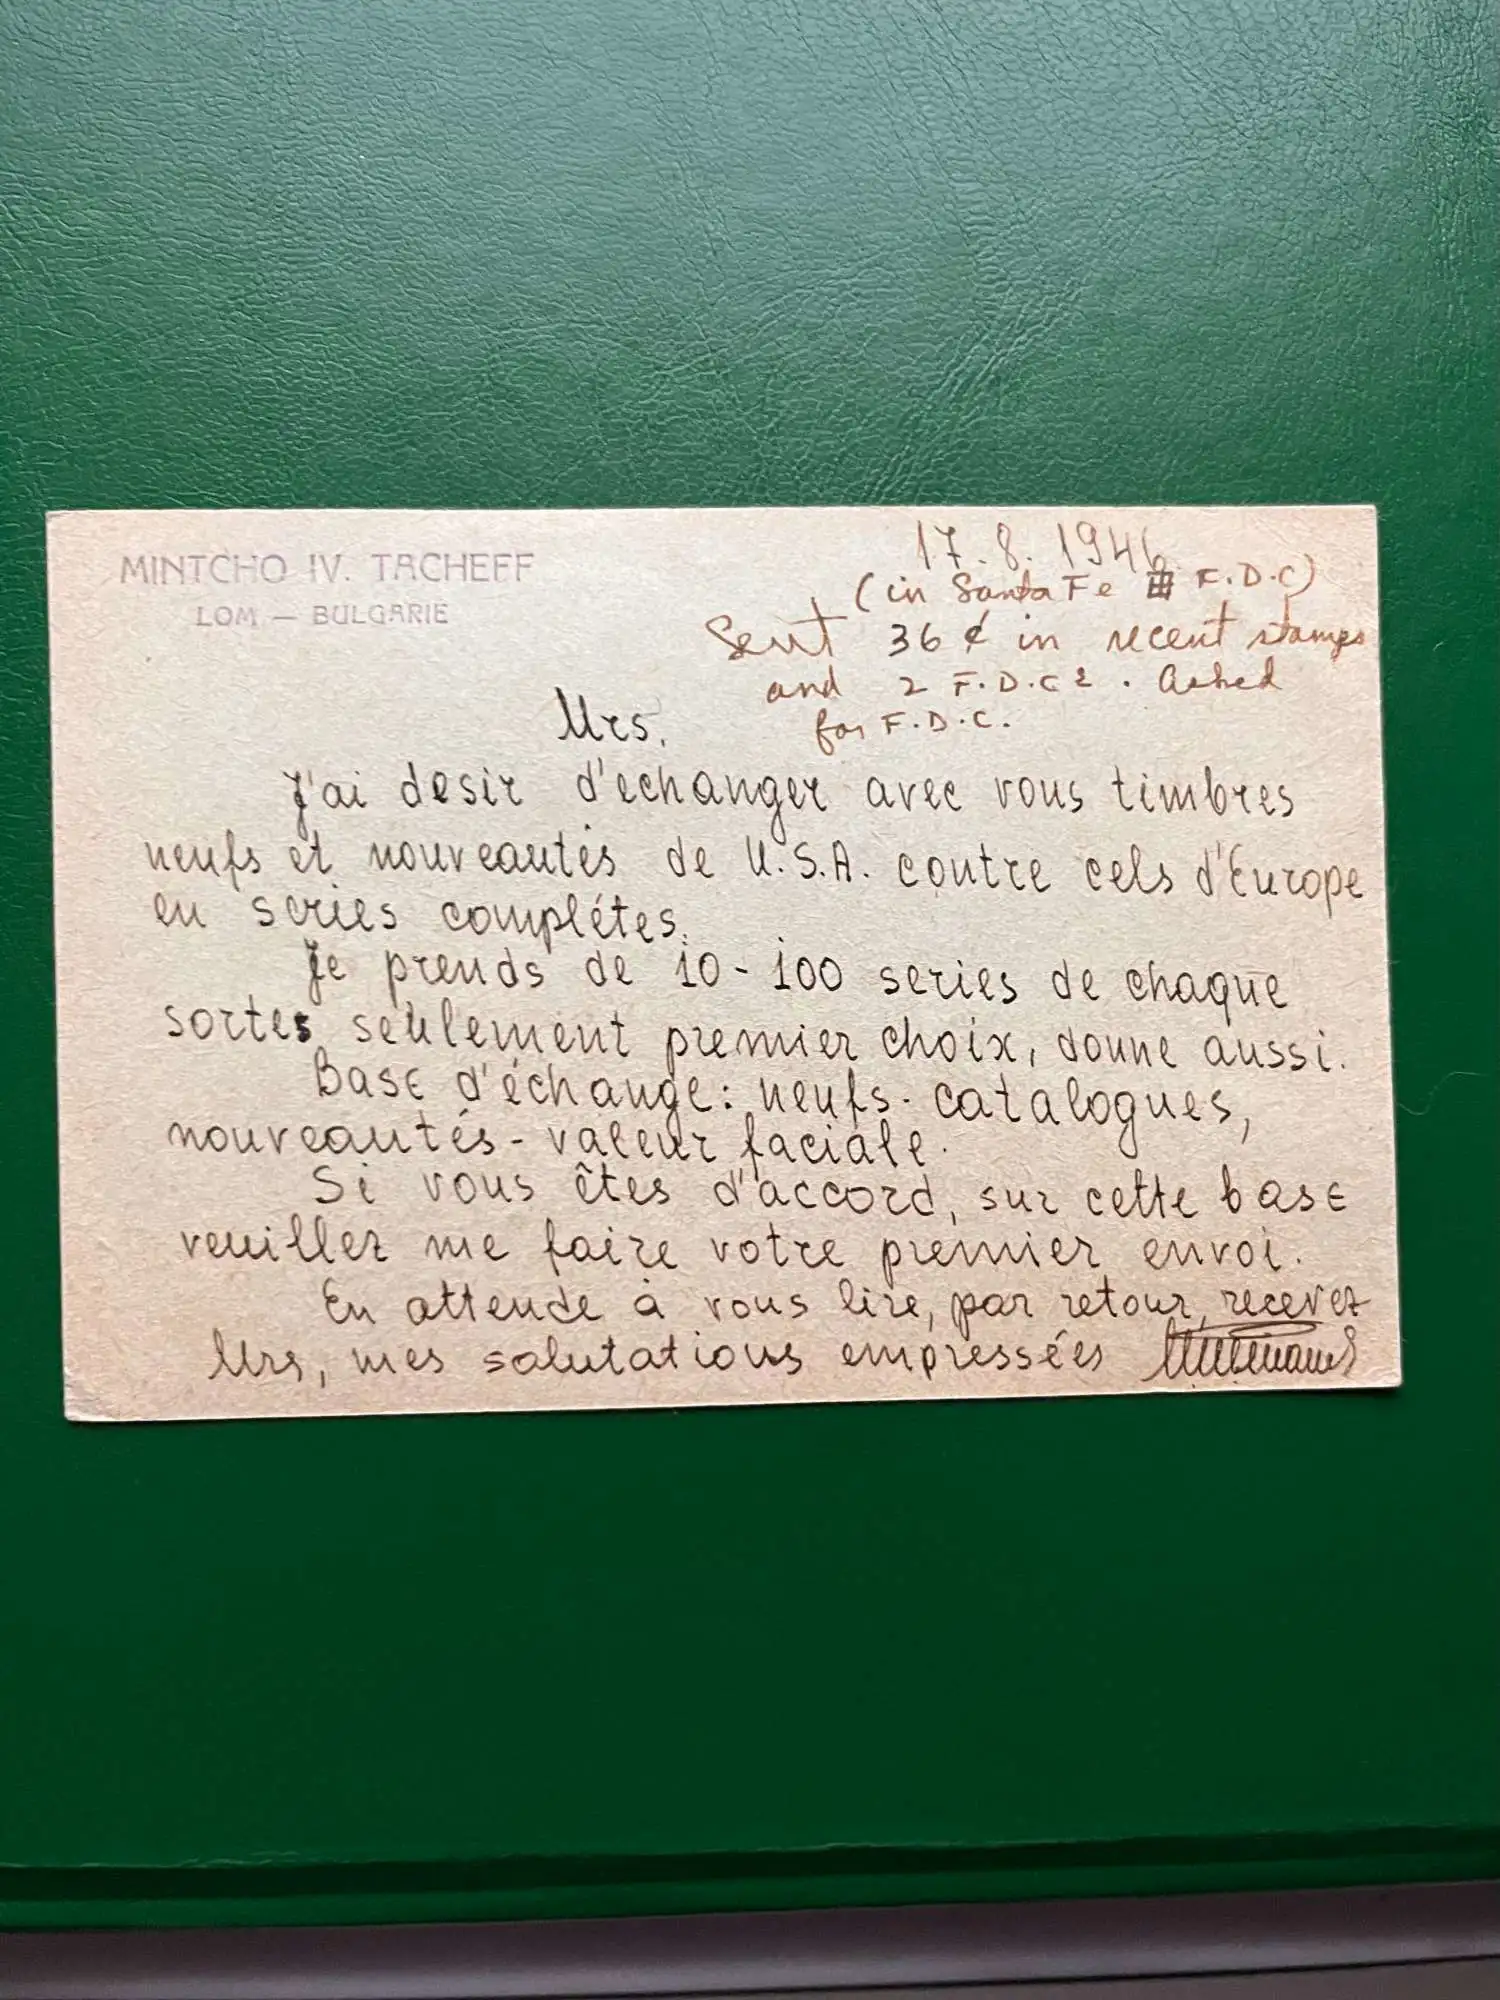 MINTCHO IV. TACHEFF
LOM — BULGARIE
17.8.1946
(in Santa Fe F.D.C)
Sent 36 ¢ in recent stamps
and 2 F.D.Cs. Asked
for F.D.C.
Mrs.
J'ai desir d'echanger avec vous timbres
neufs et nouveautés de U.S.A. contre cels d'Europe
en series complétes.
Je prends de 10-100 series de chaque
sortes seulement premier choix, donne aussi.
Base d'échange: neufs - catalogues,
nouveautés - valeur faciale.
Si vous êtes d'accord, sur cette base
veuillez me faire votre premier envoi.
En attende à vous lire, par retour, recevez
Mrs, mes salutations empressées